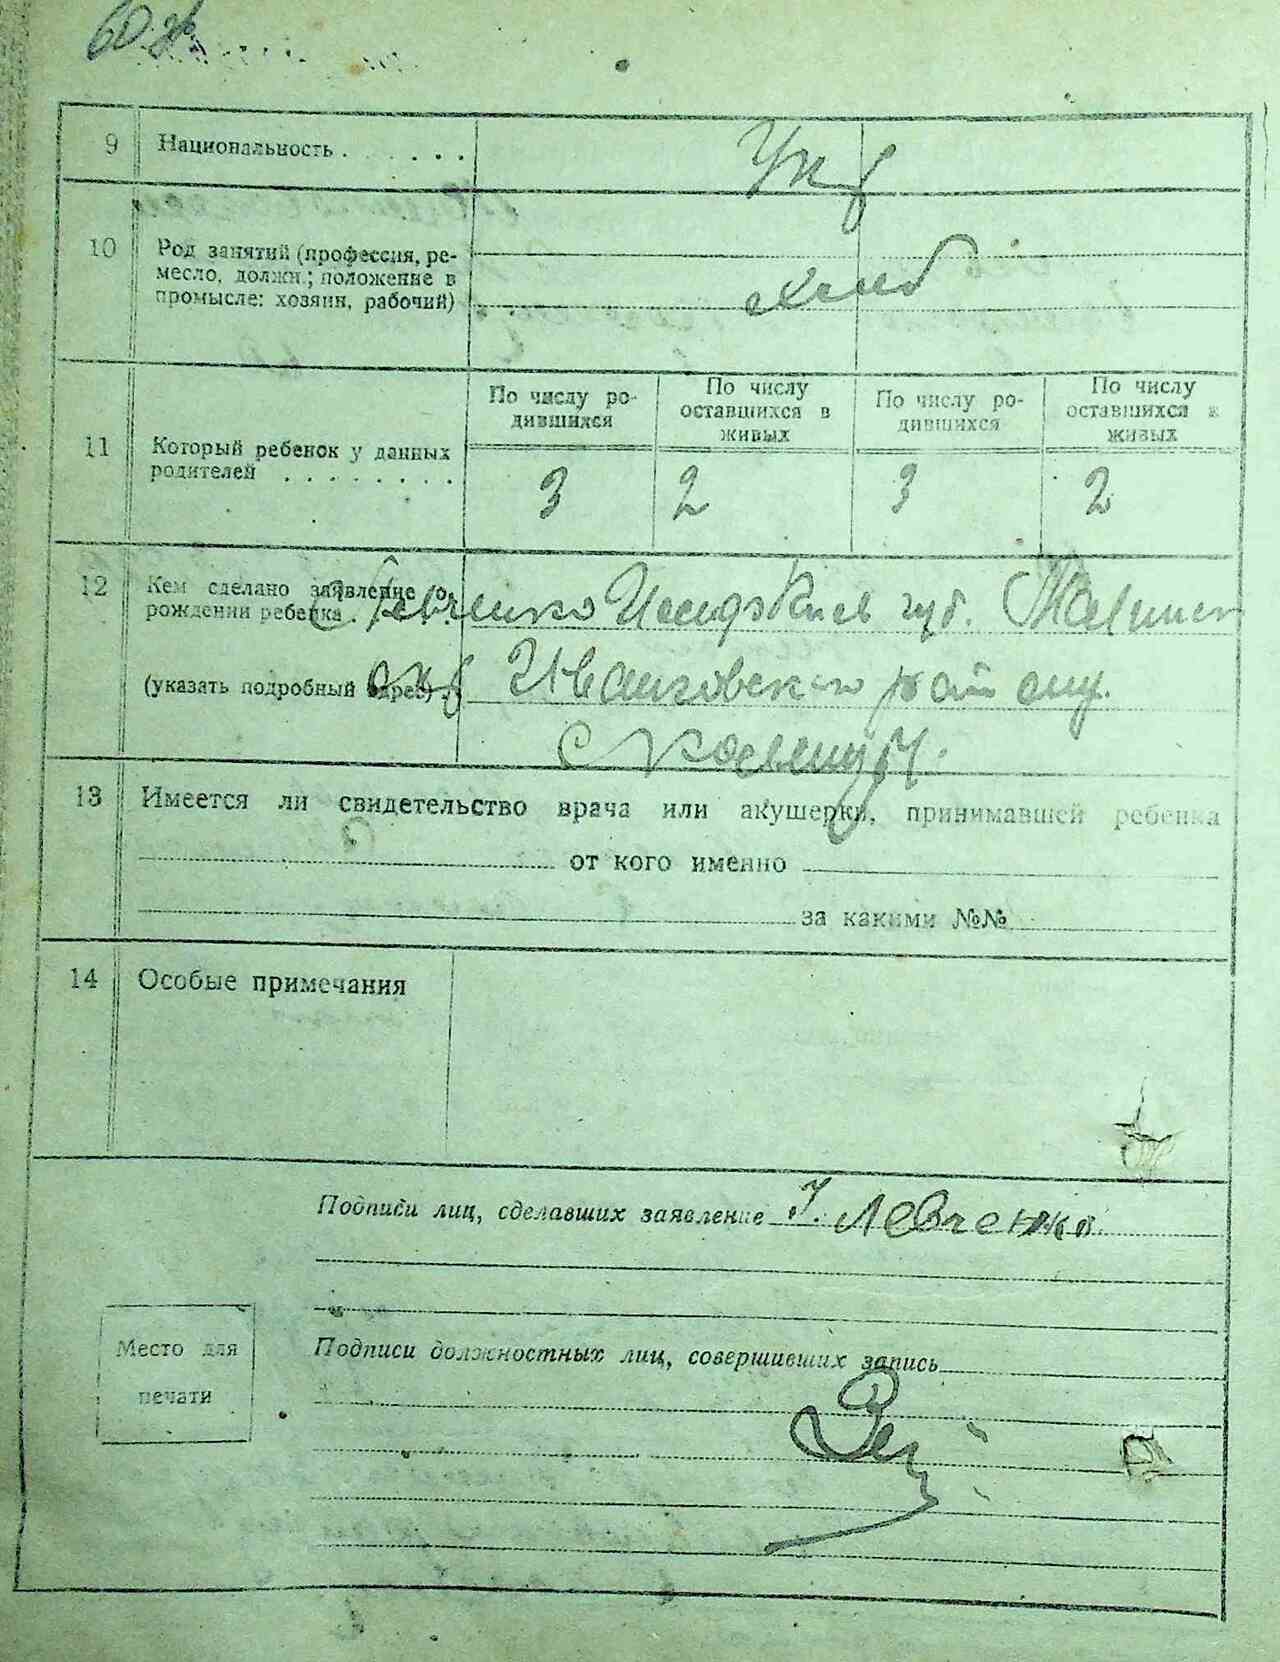 60
9 Национальность . . . . . .
Укр
10 Род занятий (профессия, ре-
месло, должн.; положение в
промысле: хозяин, рабочий)
хлеб
11 Который ребенок у данных
родителей . . . . . . . .
По числу ро-
дившихся
По числу
оставшихся в
живых
По числу ро-
дившихся
По числу
оставшихся в
живых
3 2 3 2
12 Кем сделано заявление о
рождении ребенка .
Левченко Иосиф Киев губ.
(указать подробный адрес) .
окр Иванковского район
с
13 Имеется ли свидетельство врача или акушерки, принимавшей ребенка
от кого именно
за какими №№
14 Особые примечания
Подписи лиц, сделавших заявление И. Левченко
Место для
печати
Подписи должностных лиц, совершивших запись